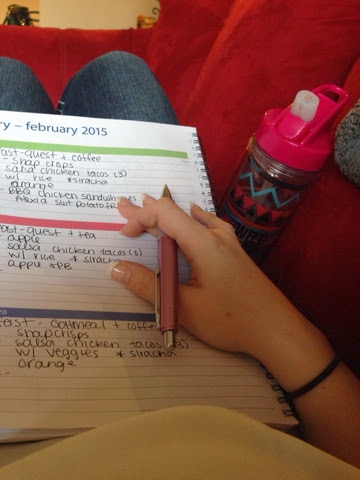 ry – february 2015
ast-quest + coffee
- snap crisps
salsa chicken tacos (3)
w/ rice * siracha
orange
- BBQ chicken sandwhiches
Alexia swt potato fr
ast-quest + tea
- apple
salsa chicken tacos (3)
w/ rice * siracha
- apple + PB
fast - oatmeal + coffe
snapcrisps
- salsa chicken tacos (3)
w/ veggies * siracha
orange